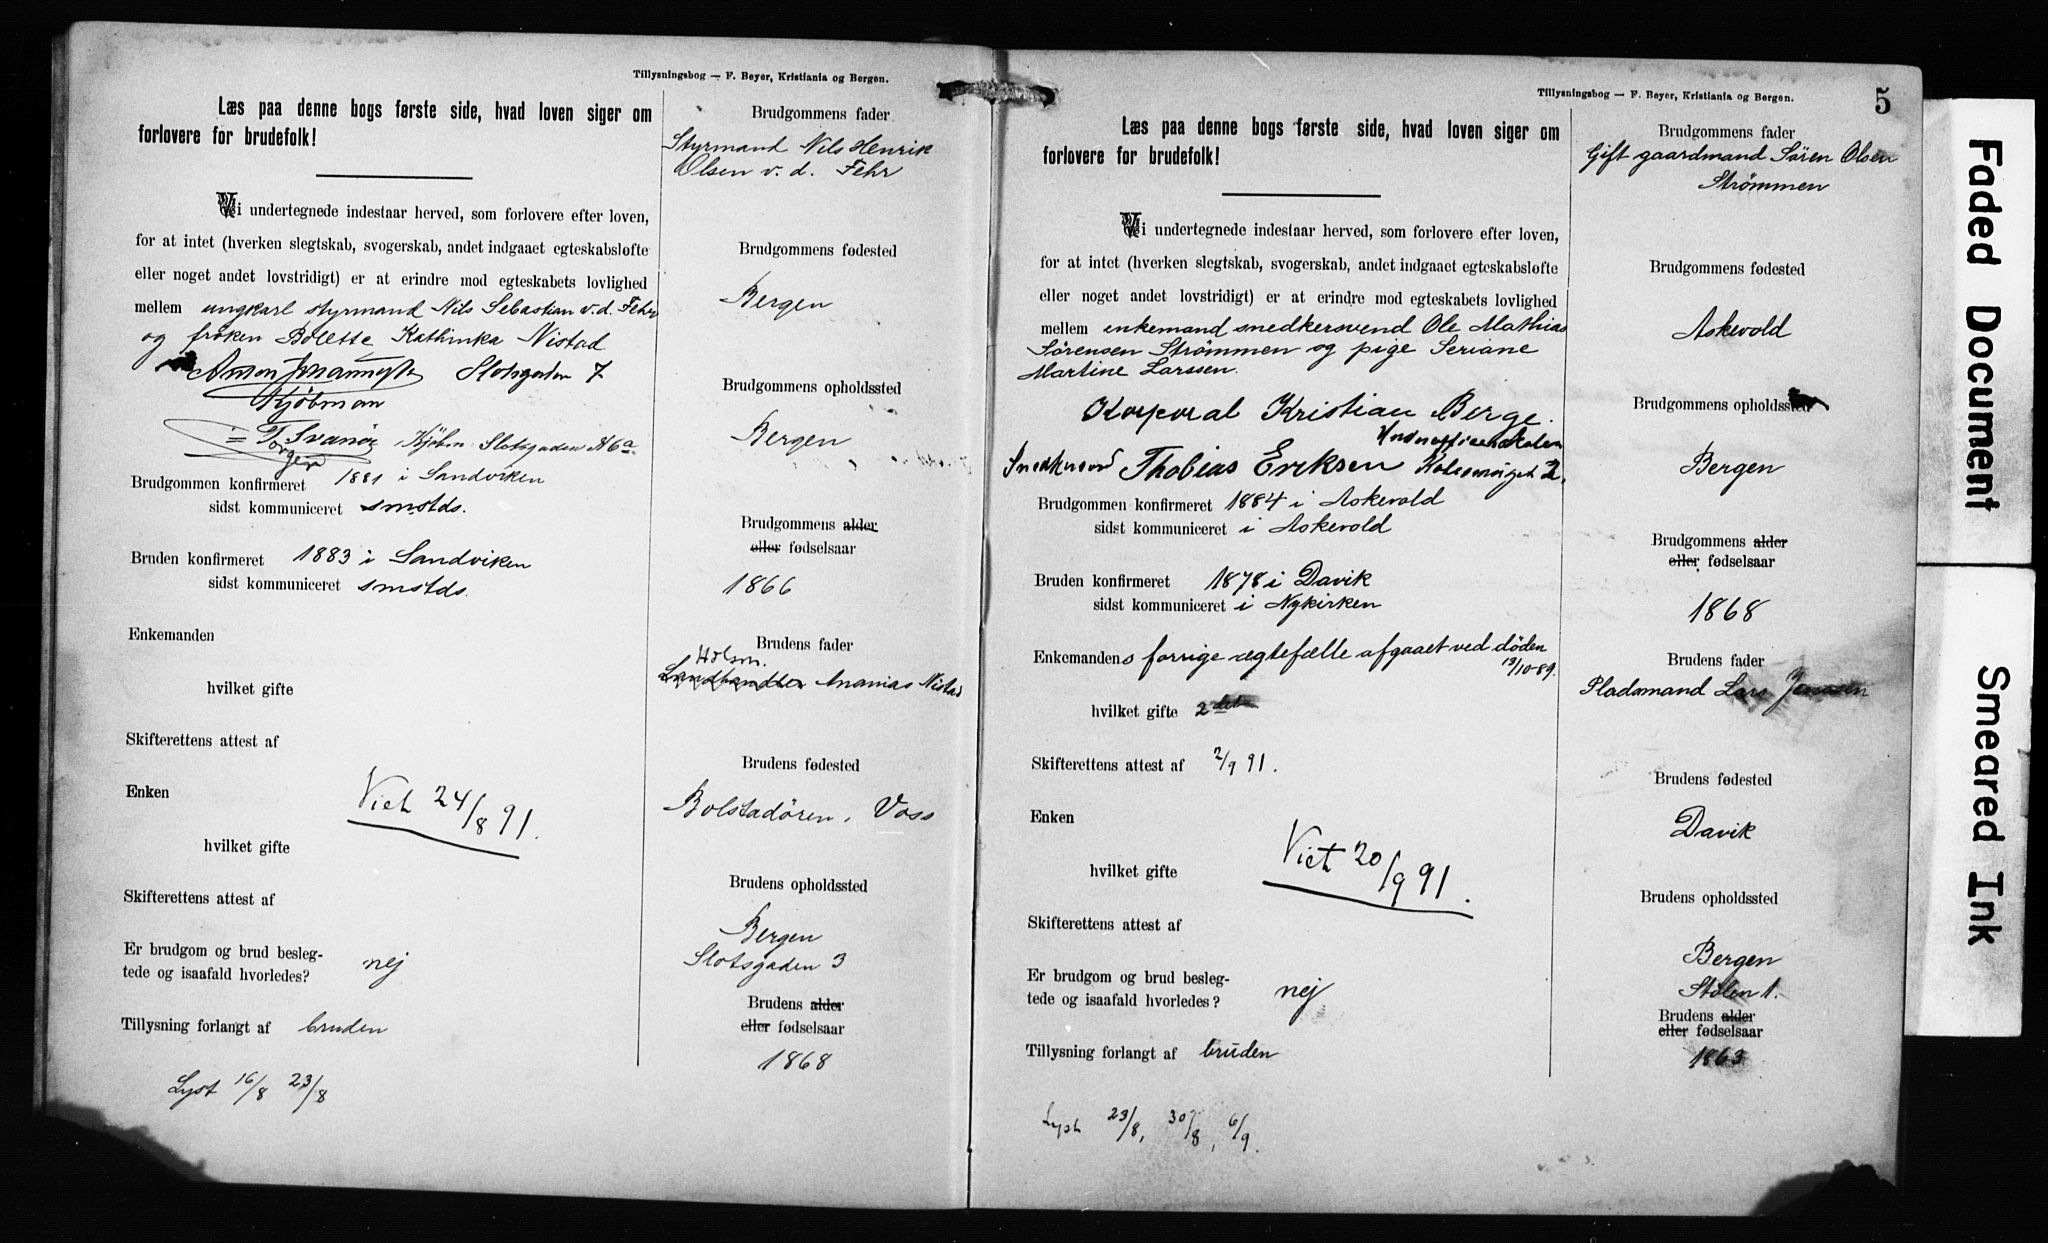 Tillysningsbog — F. Beyer, Kristiania og Bergen.
Læs paa denne bogs første side, hvad loven siger om
forlovere for brudefolk!
Vi undertegnede indestaar herved, som forlovere efter loven,
for at intet (hverken slegtskab, svogerskab, andet indgaaet egteskabsløfte
eller noget andet lovstridigt) er at erindre mod egteskabets lovlighed
mellem ungkarl styrmand Nils Sebastian v.d. Fehr
og frøken Bolette Kathinka Nistad
Slotsgaden 7
Kjøbman
T Svanöe Kjøbm. Slotsgaden N 6a
Brudgommen konfirmeret 1881 i Sandviken
sidst kommuniceret smstds.
Bruden konfirmeret 1883 i Sandviken
sidst kommuniceret smstds.
Enkemanden
hvilket gifte
Skifterettens attest af
Enken
Viet 24/8 91.
hvilket gifte
Skifterettens attest af
Er brudgom og brud besleg-
tede og isaafald hvorledes? nej
Tillysning forlangt af bruden
Lyst 16/8 23/8
Brudgommens fader
Styrmand Nils Henrik
Olsen v. d. Fehr
Brudgommens fødested
Bergen
Brudgommens opholdssted
Bergen
Brudgommens alder
eller fødselsaar
1866
Brudens fader
Landhandler Ananias Nistad
Brudens fødested
Bolstadören, Voss
Brudens opholdssted
Bergen
Slotsgaden 3
Brudens alder
eller fødselsaar
1868
Tillysningsbog — F. Beyer, Kristiania og Bergen.
5
Læs paa denne bogs første side, hvad loven siger om
forlovere for brudefolk!
Vi undertegnede indestaar herved, som forlovere efter loven,
for at intet (hverken slegtskab, svogerskab, andet indgaaet egteskabsløfte
eller noget andet lovstridigt) er at erindre mod egteskabets lovlighed
mellem enkemand snedkersvend Ole Mathias
Sørensen Strømmen og pige Seriane
Martine Larssen.
Korporal Kristian Berge.
Underofficerskolen
Snedkersvd Thobias Eriksen 2.
Brudgommen konfirmeret 1884 i Askevold
sidst kommuniceret i Askevold
Bruden konfirmeret 1878 i Davik
sidst kommuniceret i Nykirken
Enkemandens forrige ægtefælle afgaaet ved døden
13/10-89.
hvilket gifte 2det
Skifterettens attest af 2/9 91.
Enken
Viet 20/9 91.
hvilket gifte
Skifterettens attest af
Er brudgom og brud besleg-
tede og isaafald hvorledes? nej
Tillysning forlangt af bruden
Lyst 23/8, 30/8, 6/9.
Brudgommens fader
Gift gaardmand Sören Olsen
Strømmen
Brudgommens fødested
Askevold
Brudgommens opholdssted
Bergen
Brudgommens alder
eller fødselsaar
1868
Brudens fader
Pladsmand Lars Jenssen
Brudens fødested
Davik
Brudens opholdssted
Bergen
Stølen 1.
Brudens alder
eller fødselsaar
1863
Faded Document
Smeared Ink